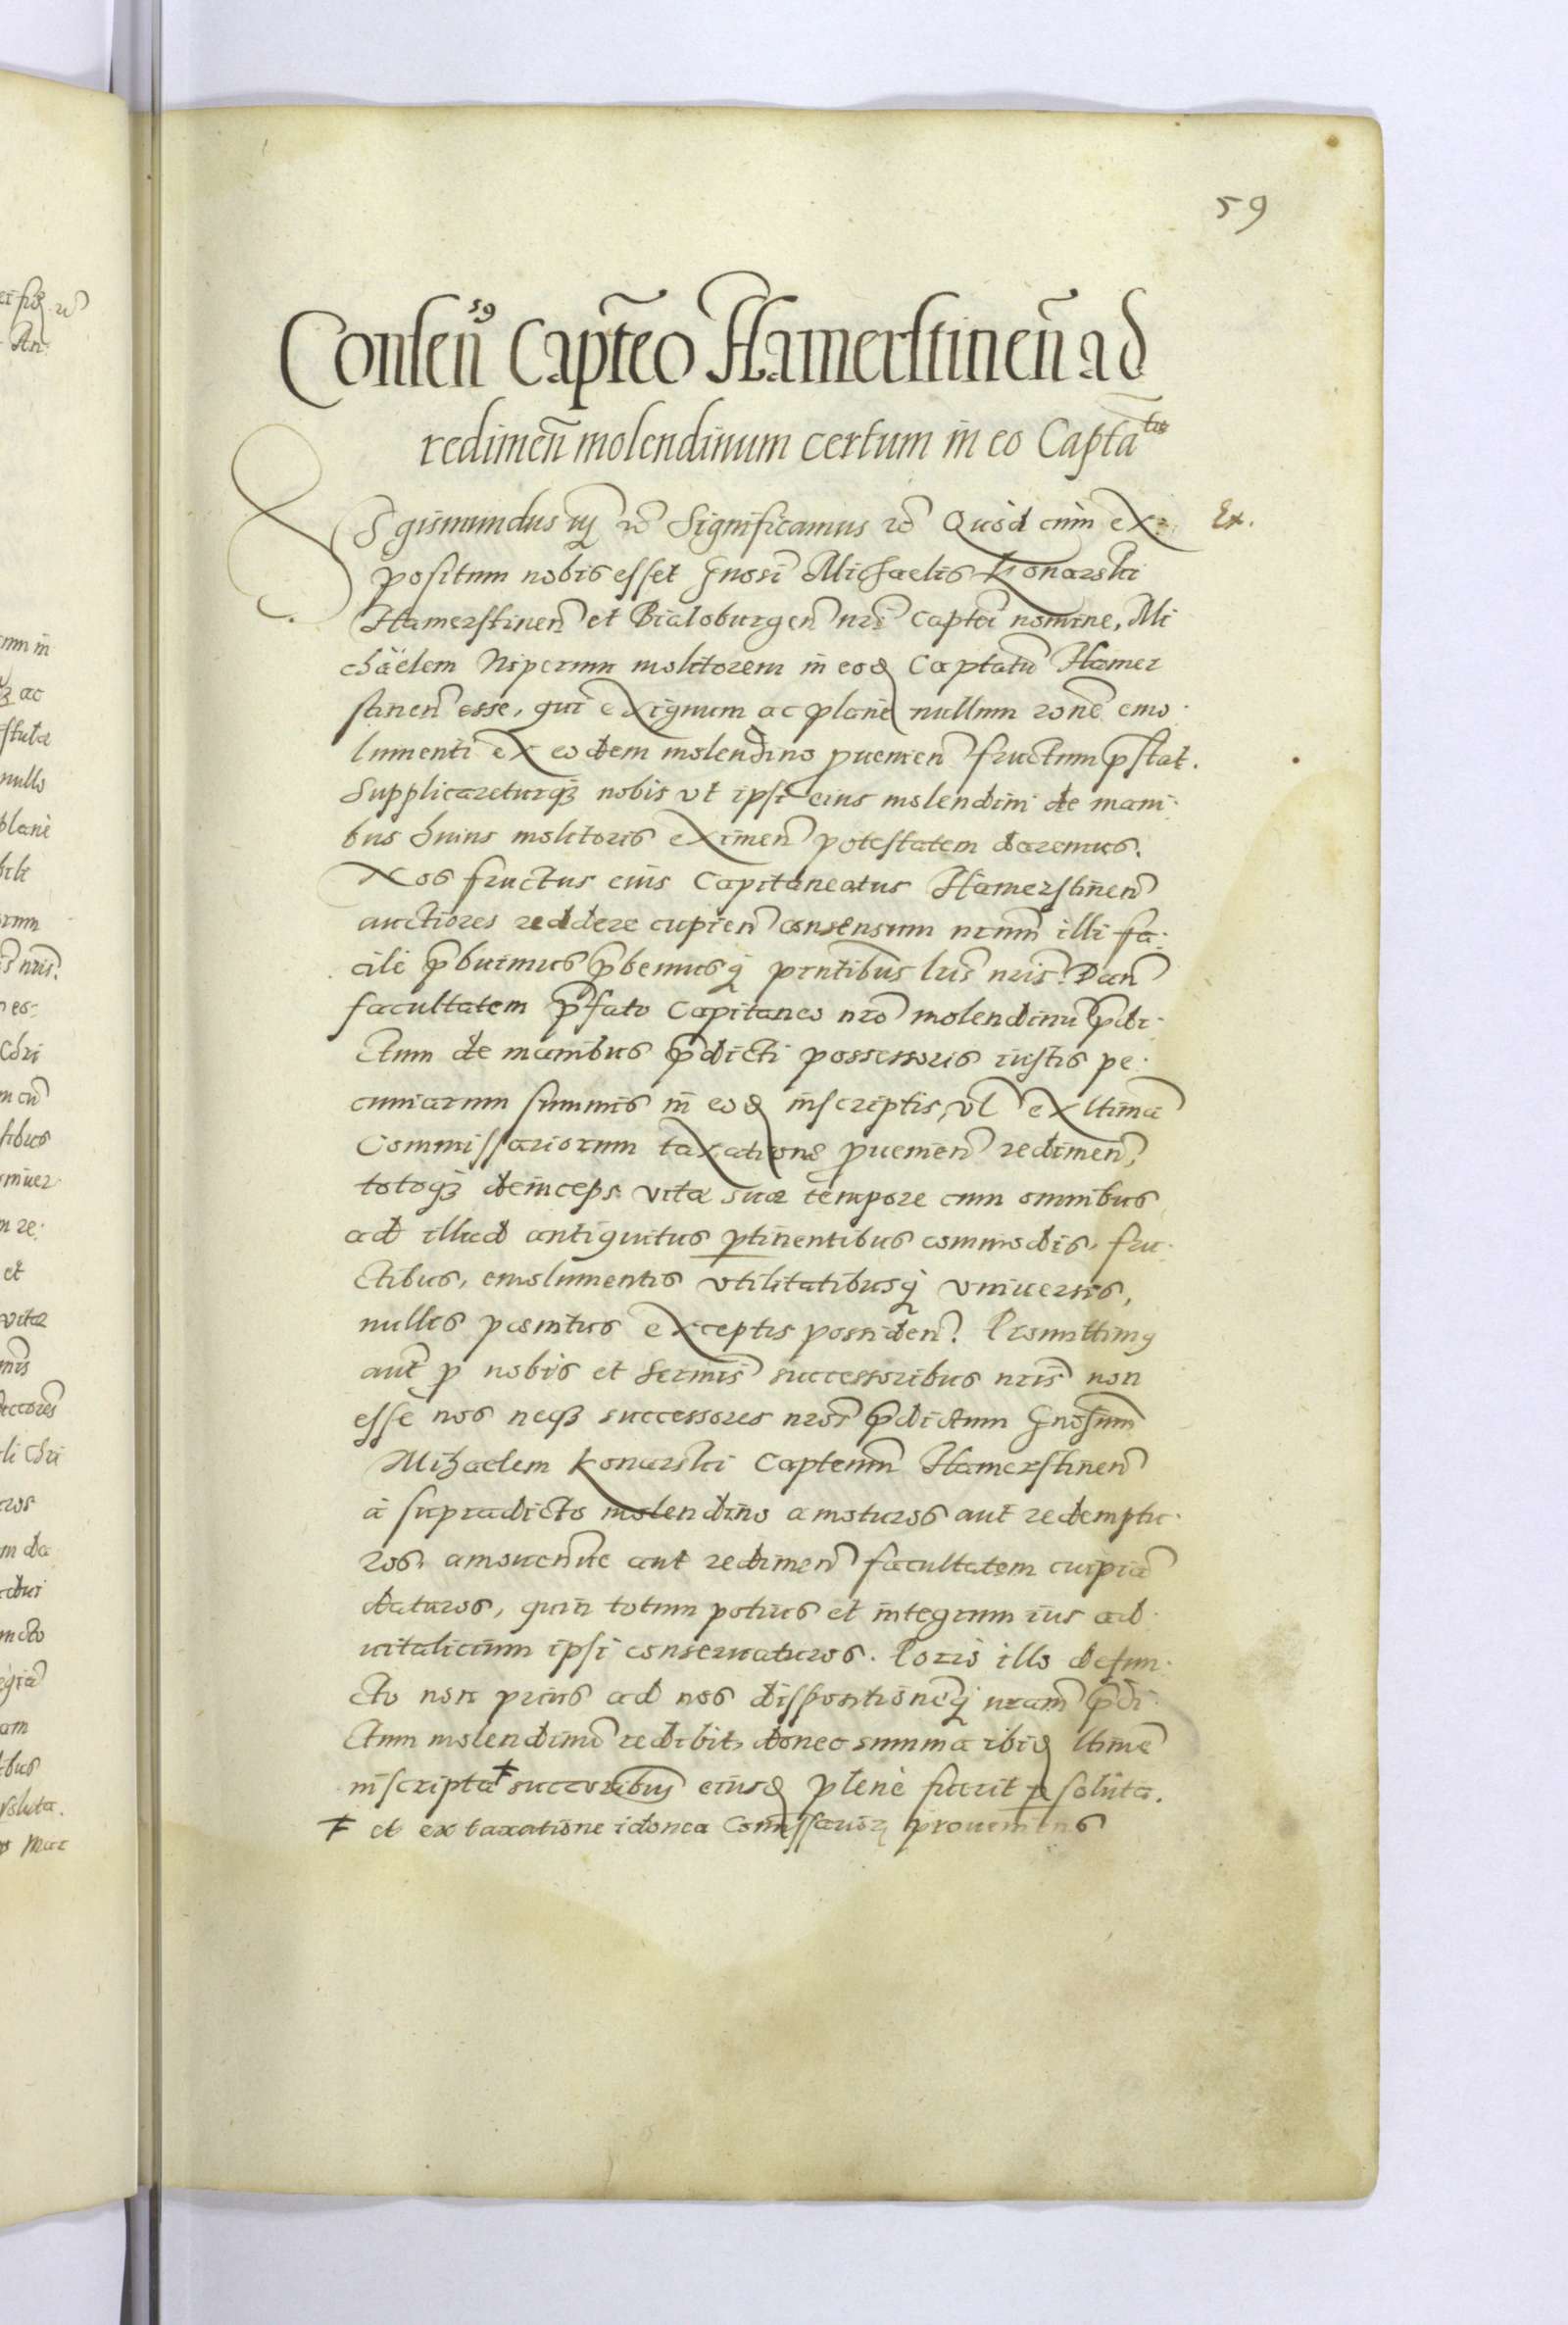 59
Consen̄9 Capteo Hamerstinen̄ ad
redimen̄ molendinum certum in eo Captatus
Sigismundus iij etc Significamus etc Quod cum ex= Ex.
positum nobis esset Gnosi Michaelis Konarski
Hamerstinen̄ et Bialoburgen̄ nri Captei nomine, Mi
chäelem Nipernn molitorem in eod Captatu Hamer
stinen̄ esse, qui exiguum ac plane nullum rone emo.
lumenti ex eodem molendino puenien̄ fructum pstat.
Supplicareturq3 nobis vt ipsi eius molendini de mani.
bus huius molitoris eximen̄ potestatem daremus.
Nos fructus eius Capitaneatus Hamerstinen̄
auctiores reddere cupien̄ consensum nrum illi fa.
cile pbuimus pbemusq pntibus lris nris. Dan̄
facultatem pfato Capitaneo nro molendinu pdi.
ctum de manibus pdicti possessoris iustis pe.
cuniarum summis in eod inscriptis, vl ex ltima
Commissariorum taxatione puenien̄ redimen̄,
totoq3 deinceps vitæ suæ tempore cum omnibus
ad illud antiquitus ptinentibus commodis, fru.
ctibus, emolumentis vtilitatibusq vniuersis,
nullis poenitus exceptis possiden̄. Promittimus
aut p nobis et Sermis successoribus nris non
esse nos neq3 successores nros pdictum Gnosum
Mihaelem Konarski Capteum Hamerstinen̄
à supradicto molendino amoturos aut redemptu.
ros, amouen̄ue aut redimen̄ facultatem cuipia
daturos, quin totum potius et integrum ius ad
uitalicium ipsi conseruaturos. Porro illo defun.
cto non prius ad nos dispositioneq nram pdi.
ctum molendinu redibit, donec summa ibid ltime
inscripta + succoribus eiusd plene fuerit psoluta.
+ et ex taxatione idonea Comissarior proueniens